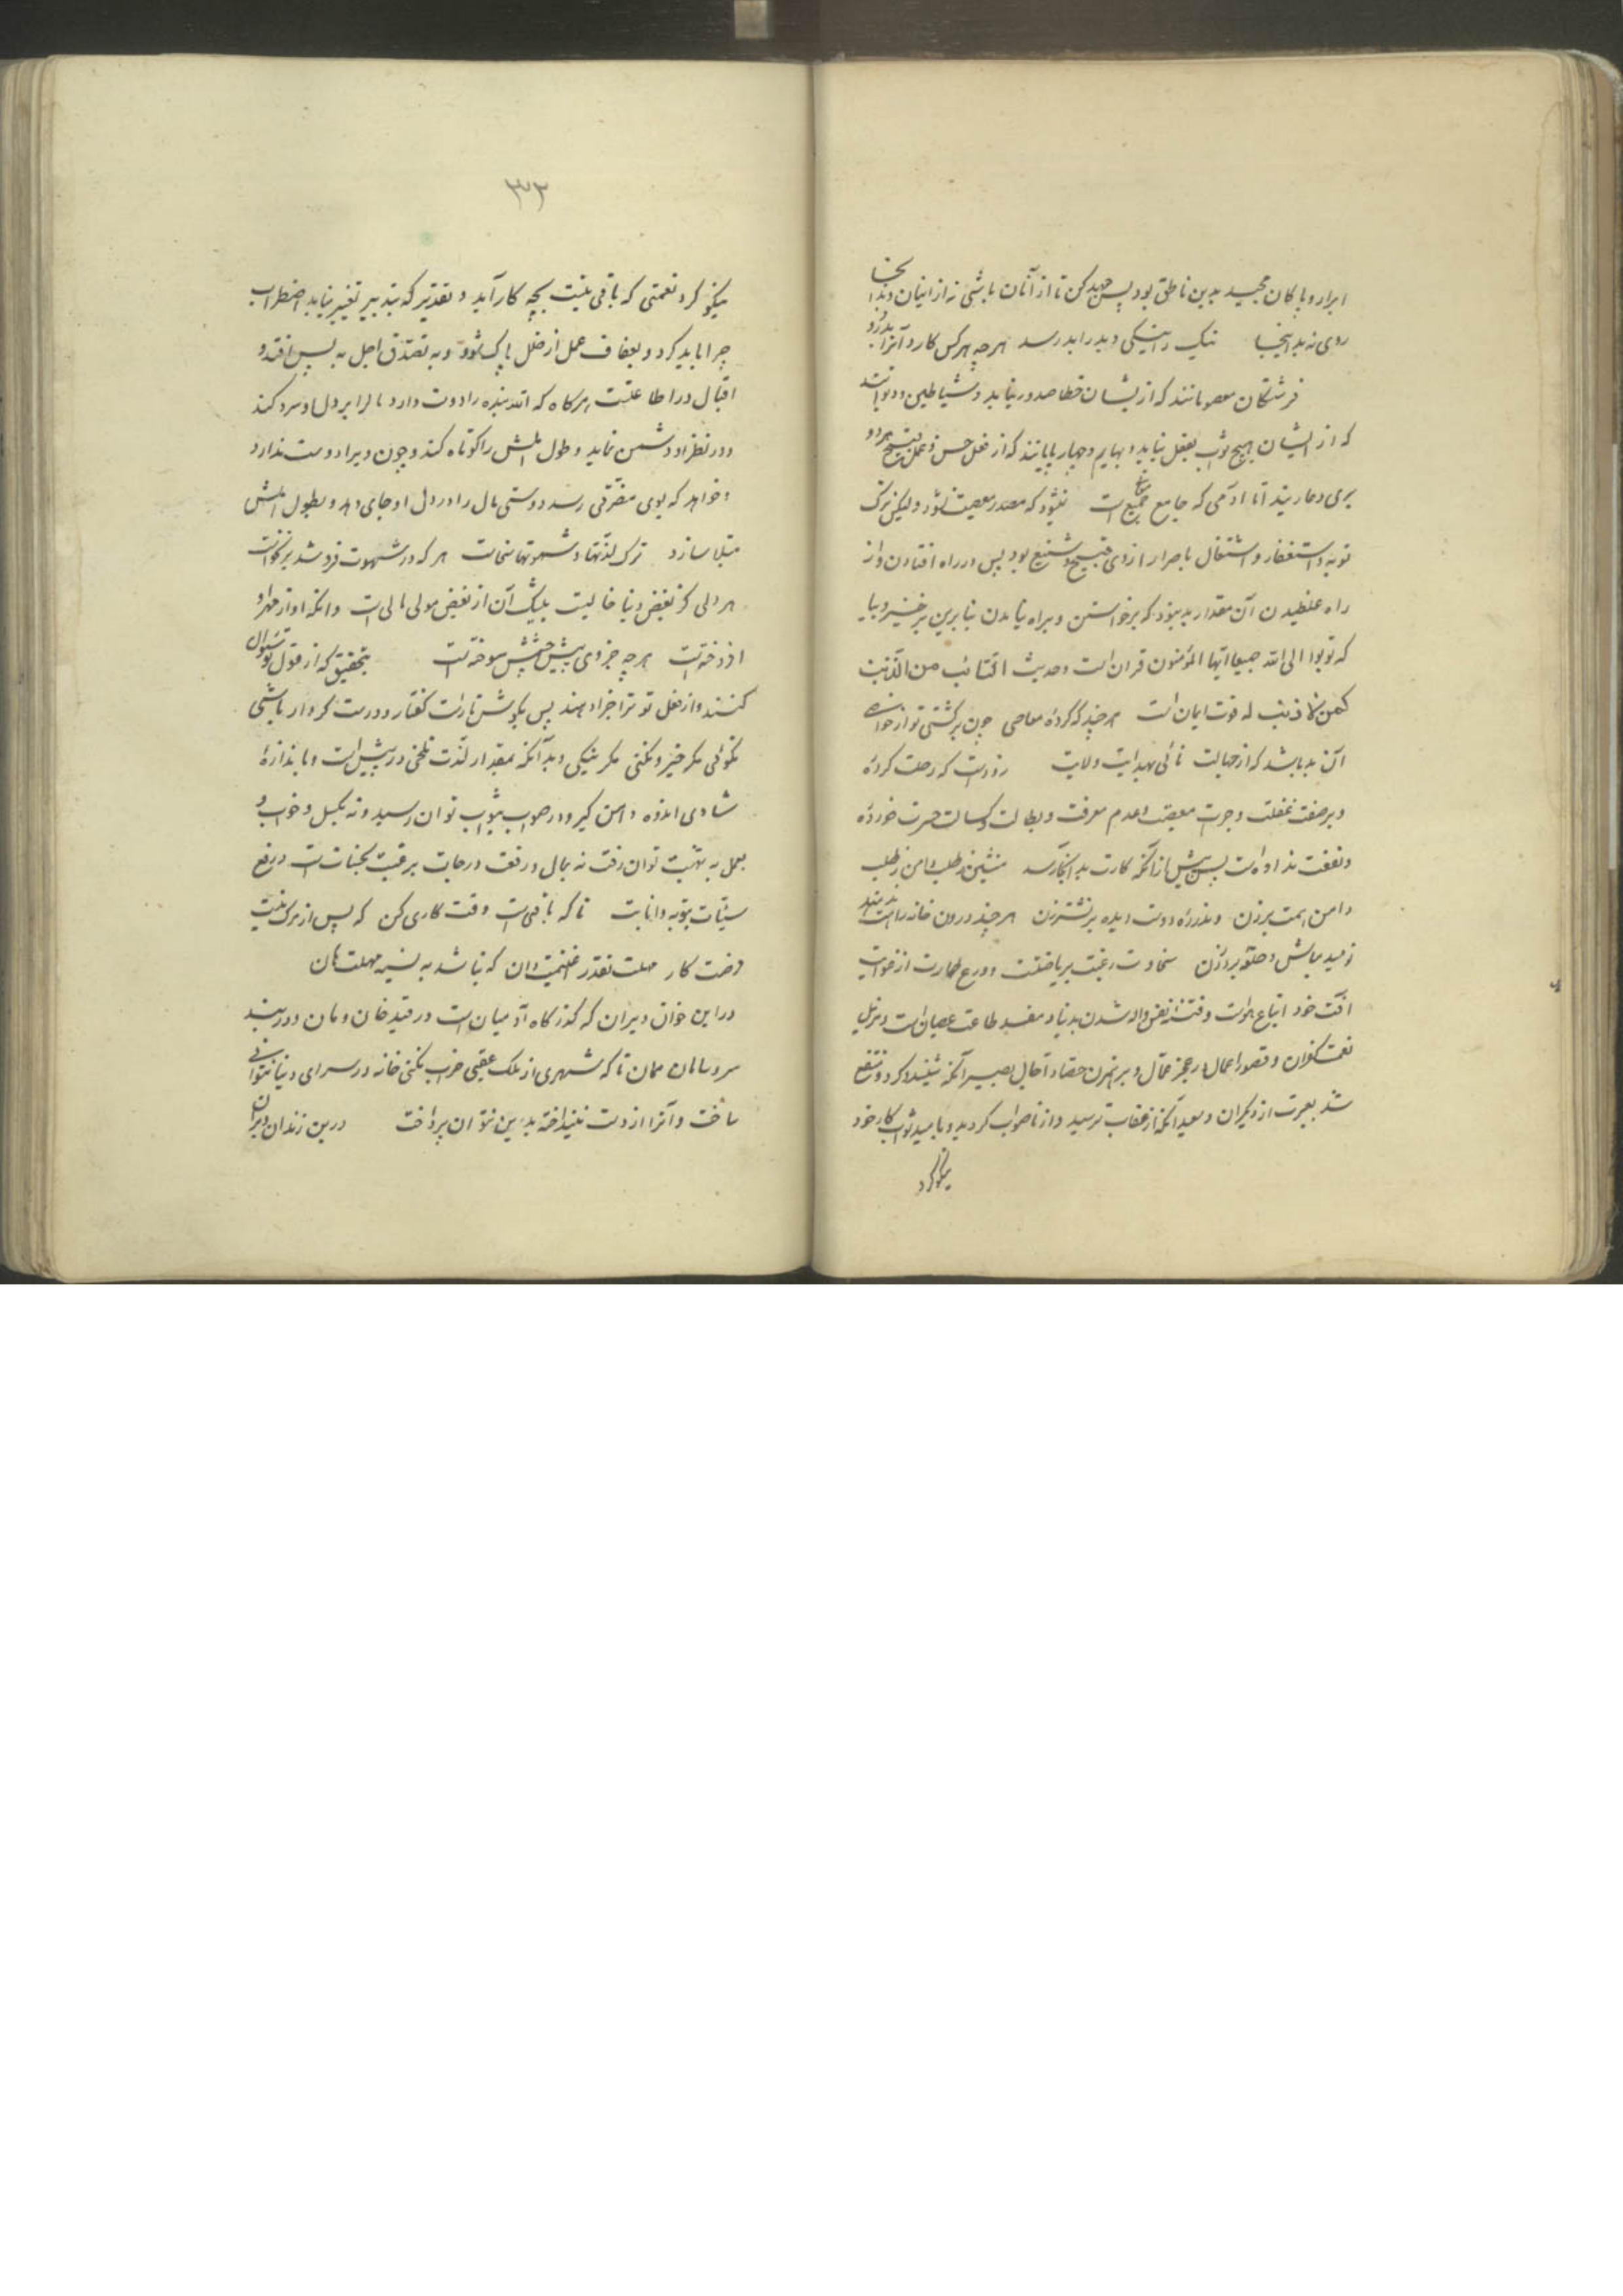 ابرار و پاکان مجید بدین ناطق بود پس جهد کن تا از آنان باشی نه از اینان و بدانجا
روی نه بد اینجا نیک را نیکی و بد را بد رسد هر چه هر کس کارد آنرا بدرود
فرشتگان معصومانند که از یشان خطا صدور نیابد و شیاطین
که از ایشان هیچ ثواب بفعل نیاید و بهایم و چهار پایانند که از فعل حسن و عمل قبیح هر دو
بری و عاریند اما ادمی که جامع جمیع است نشود که مصدر معصیت نشود ولیکن ترک
توبه و استغفار و اشتغال باصرار از وی قبیح و شنیع بود پس در راه افتادن و از
راه غلطیدن آن مقدار بد نبود که برنخواستن و براه نیامدن بنابرین برخیز و بیا
که توبوا الی الله جمیعا ایها المؤمنون قران است و حدیث التائب من الذنب
کمن لا ذنب له قوت ایمان است هر چند که کردهٔ معاصی چون برگشتی تو از
آن به باشد که از جهالت نائی بهدایت ولایت روزیست که رحلت کردهٔ
و بر صفت غفلت و جرات معصیت و عدم معرفت و بطالت و کسالت حسرت خوردهٔ
و نفقت نداده است پس پیش از آنکه کارت بد انکار رسد منشین و طلب دامن ز طلب
دامن همت برزن و نذر ره دوست دیده بر نشتر زن هر چند درون خانه راهت ندهند
نومید مباش و حلقه بر در زن سخاوت رغبت بریاضتست و ورع طهارت از
افت خود اتباع هواست و فتنه نفس واله شدن بدنیا و مفسد طاعت عصیان است و مزیل
نعمت کفران و قصور اعمال در عجز عمال و بصیر آنکه شنید و کرد و منتفع
شد بعبرت از دیگران و سعید آنکه از عقاب ترسید و از ناصواب گردید و بامید ثواب کار خود
نیکو کرد
۳۳
نیکو کرد نعمتی که باقی نیست بچه کار آید و تقدیر که بتدبیر تغییر نیابد اضطراب
چرا باید کرد و بعفاف عمل از خلل پاک شود و به تصدق اجل به پس افتد و
اقبال در اطاعتست هر کاه که الله بنده را دوست دارد مالرا بر دل او سرد کند
و در نظر او دشمن نماید و طول املش را کوتاه کند و چون ویرا دوست ندارد
و خواهد که بوی مضرتی رسد دوستی مال را در دل او جای دهد و بطول املش
مبتلا سازد ترک لذتها و شهوتها سخاست هر که در شهوت فرو شد برنخواست
هر دلی کز بغض دنیا خالیست بیشک آن از بغض مولی مالی است وانکه او از مهر او
افروختست هر چه جز وی پیش چشمش سوختست بتحقیق که از قول تو سئوال
کنند و از فعل تو ترا جزا دهند پس بکوش تا راست کفتار و درست کردار باشی
نکوئی مکر خیر و نکنی مکر نیکی و بدآنکه بمقدار لذت تلخی در پیش است و باندازهٔ
شادی اندوه دامن کیر و در صواب بثواب توان رسید و نه بکسل و خواب و
بعمل به بهشت توان رفت نه بمال و رفعت درجات برغبت بحسنات است و رفع
سیئات بتوبه و انابت تا که باقیست وقت کاری کن که پس از مرک نیست
رخصت کار مهلت نقدر غنیمت دان که نباشد به نسیه مهلت مان
در این خوان ویران که کذرکاه آدمیان است در قید خان و مان و در بند
سر و سامان ممان تا که شهری از ملک عقبی خراب نکنی خانه در سرای دنیا نتوانی
ساخت و آنرا از دست نینداخته بدین نتوان پرداخت درین زندان ویران